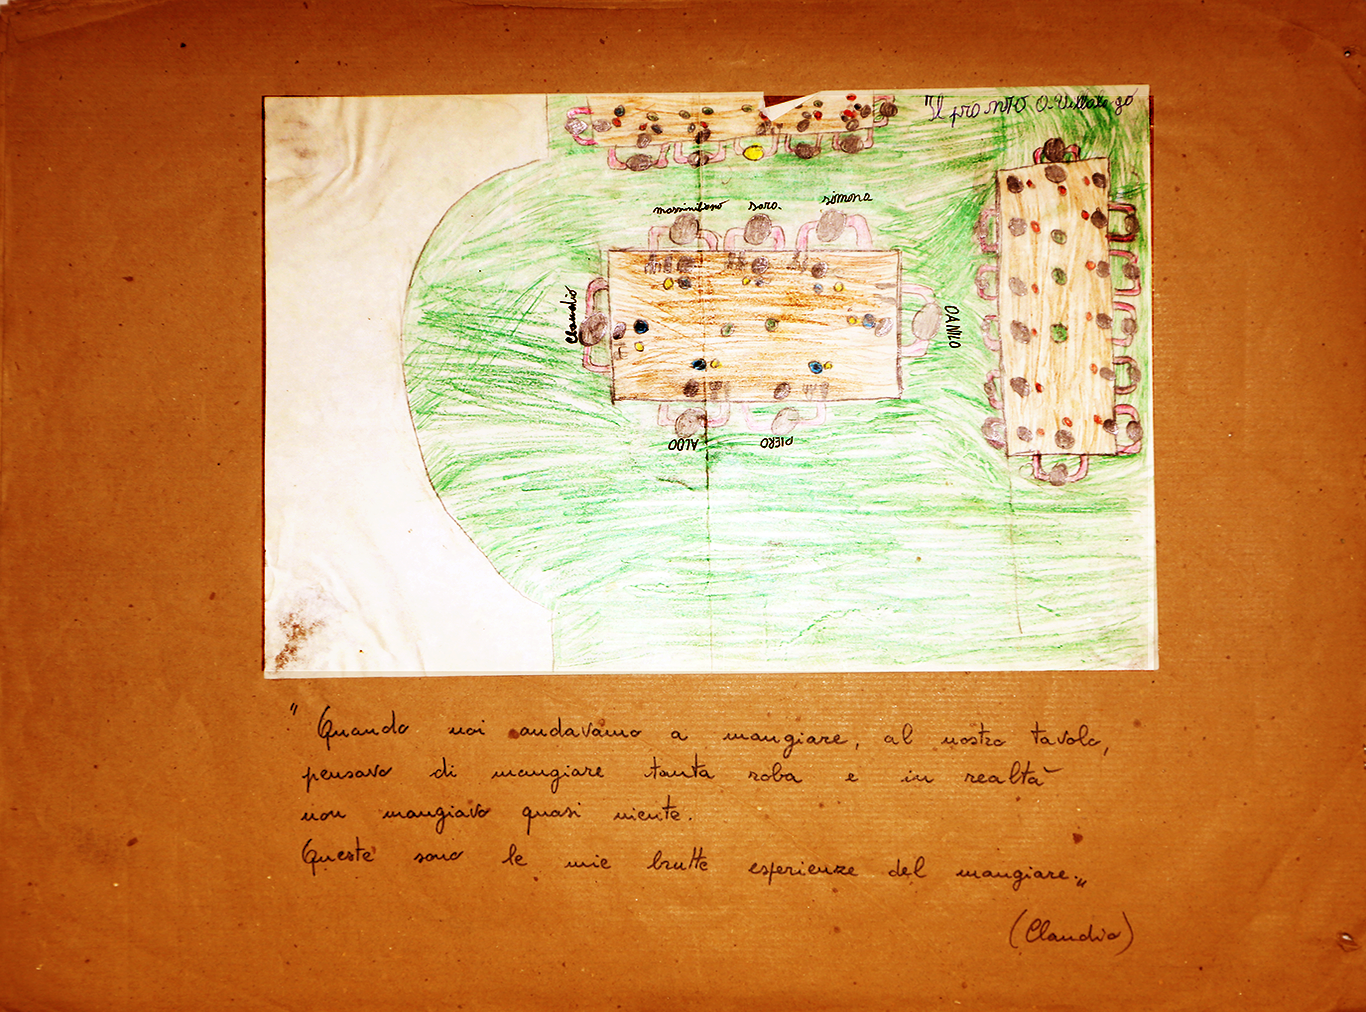 "Il pranzo a Villalago
massimiliano
sara.
simona
Claudio
DANILO
ALDO
PIERO
"Quando noi andavamo a mangiare, al nostro tavolo,
pensavo di mangiare tanta roba e in realtà
non mangiavo quasi niente.
Queste sono le mie brutte esperienze del mangiare."
(Claudio)